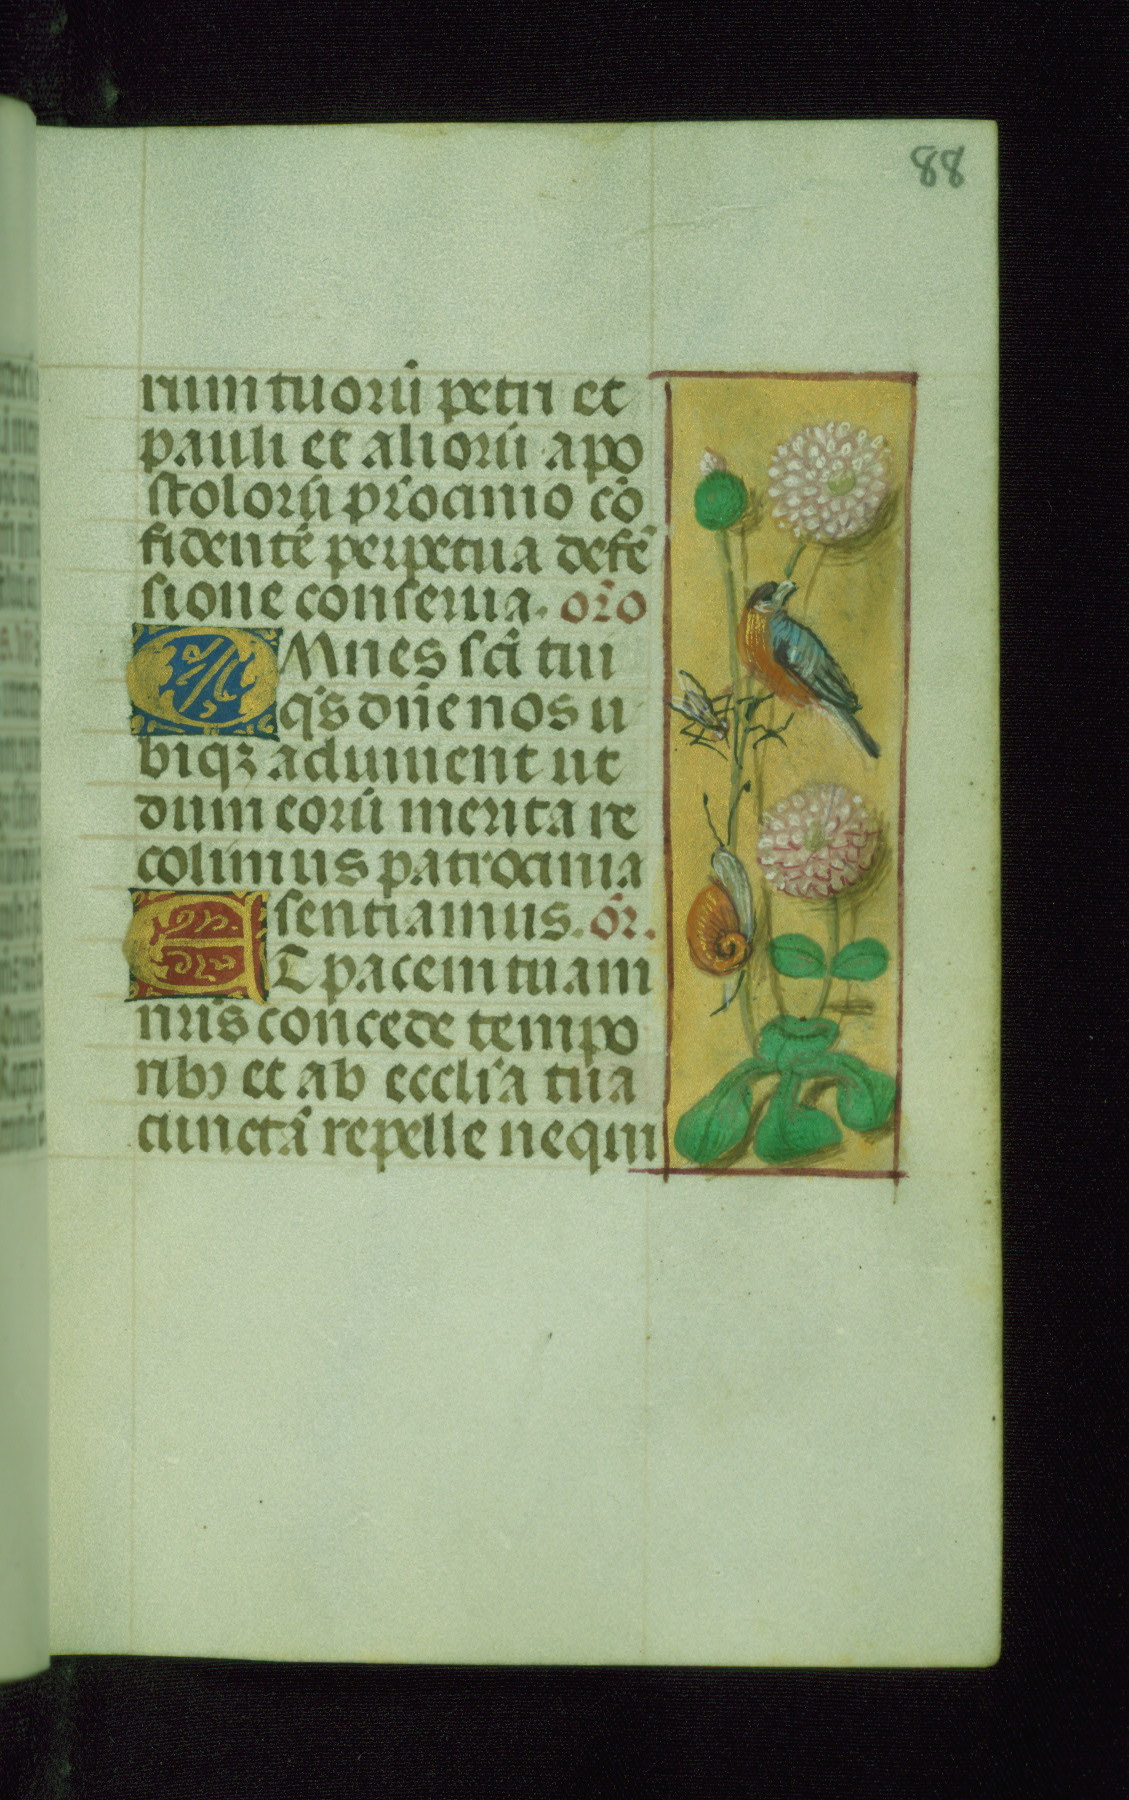 88
rum tuorū petri et
pauli et aliorū apo
stolorū p̄rocinio cō
fidentē perpetua defē
sione conserua. or̄o
OMnes sc̄i tui
q̄s dn̄e nos u
biqꝫ adiuuent ut
dum eorū merita re
colimus patrocinia
sentiamus. or̄.
ET pacem tuam
nr̄is concede tempo
ribꝰ et ab eccl̄ia tua
cunctā repelle nequi